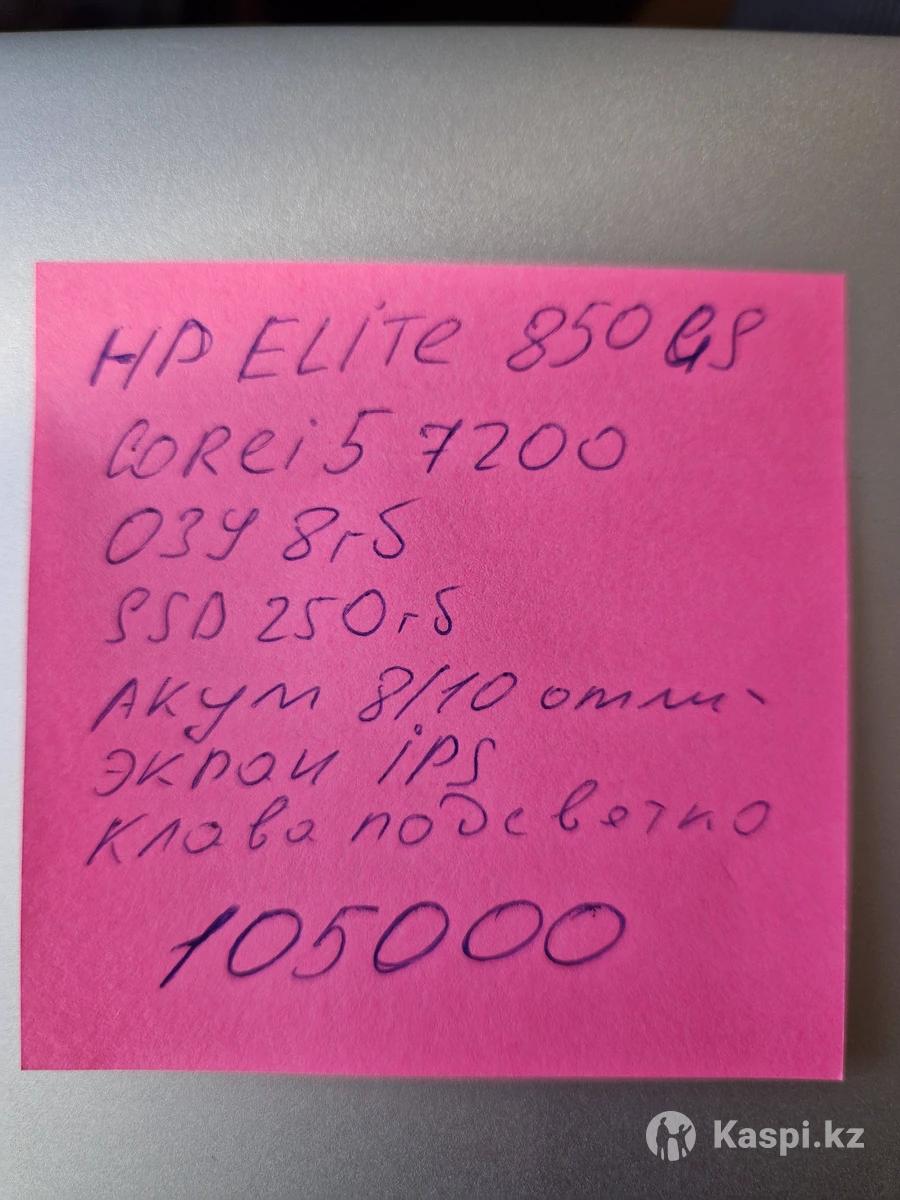 HP ELiTe 850 G5
CoRei5 7200
ОЗУ 8гб
SSD 250гб
Акум 8/10 отли-
экран iPS
клава подсветка
105000
Kaspi.kz